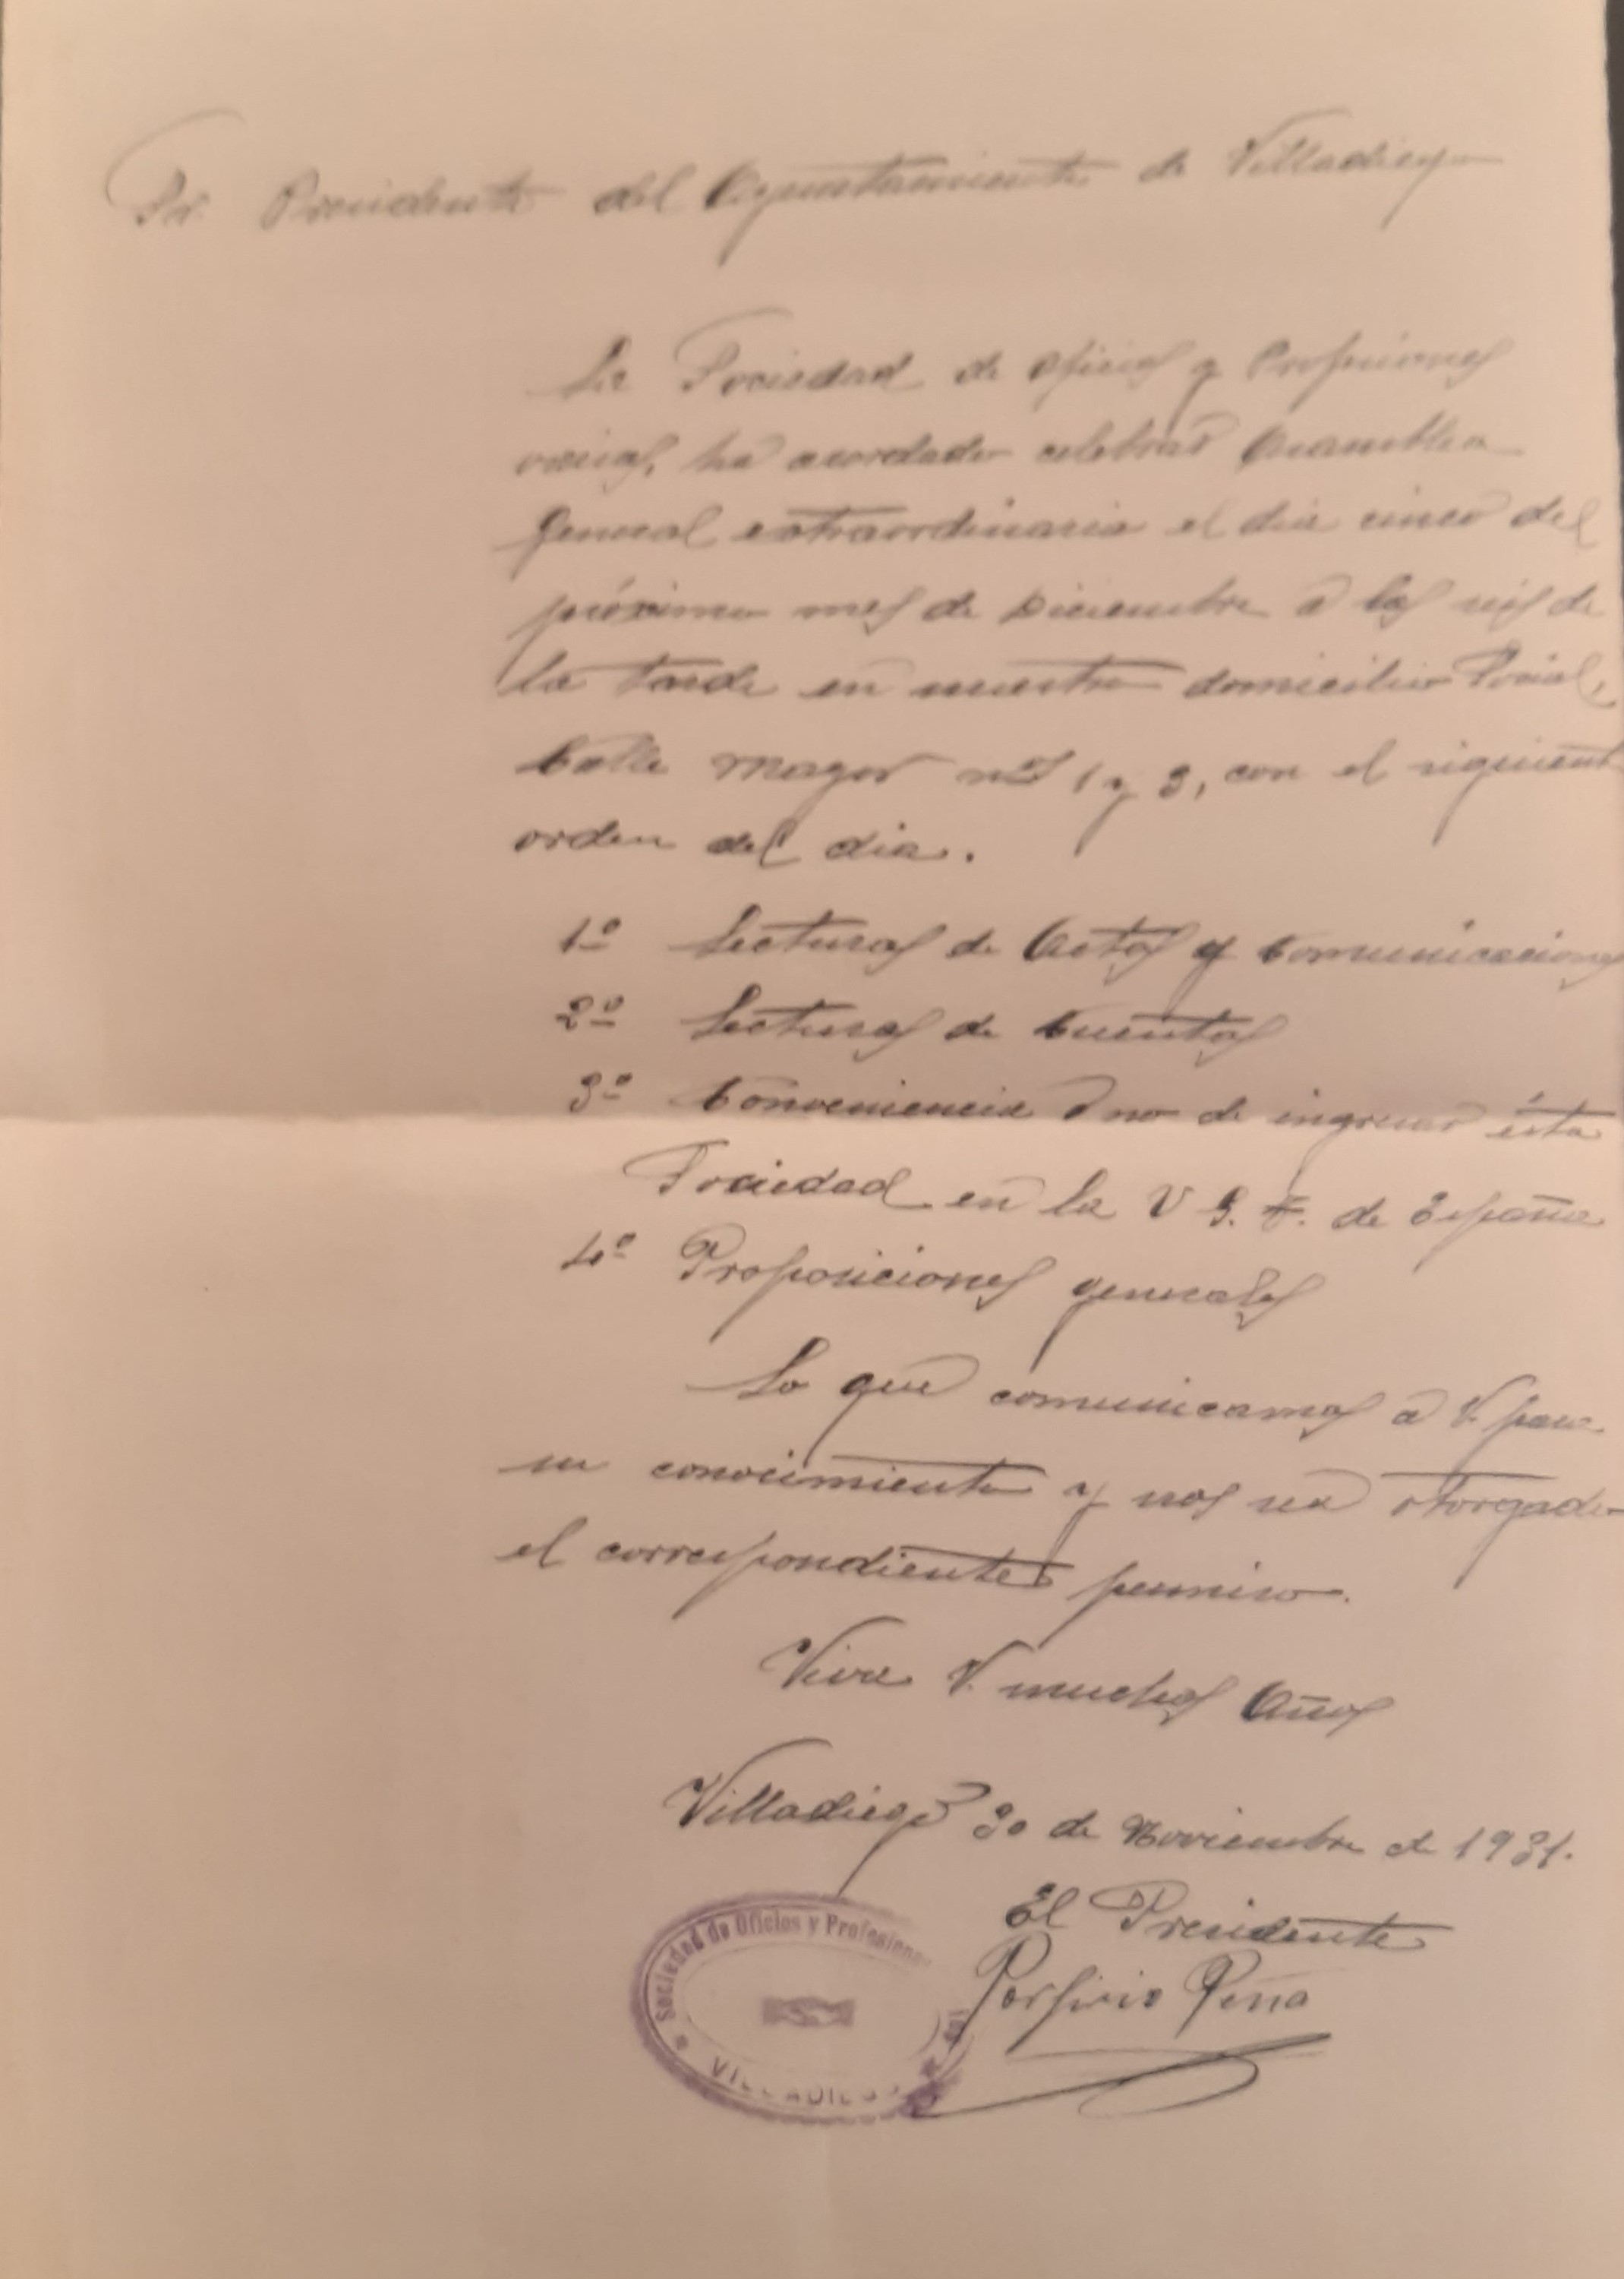 Sr. Presidente del Ayuntamiento de Villadiego
La Sociedad de Oficios y Profesiones
varias, ha acordado celebrar Asamblea
General extraordinaria el dia cinco del
próximo mes de Diciembre a las seis de
la tarde en nuestro domicilio Social,
Calle Mayor nos 1 y 3, con el siguient
orden del dia.
1º Lecturas de Actas y Comunicaciones
2º Lecturas de Cuentas
3º Conveniencia o no de ingresar ésta
Sociedad en la U G. T. de España
4º Proposiciones generales
Lo que comunicamos a V. para
su conocimiento y nos sea otorgado
el correspondiente permiso.
Viva V. muchos Años
Villadiego 30 de Noviembre de 1931.
El Presidente
Porfirio Peña
Sociedad de Oficios y Profesiones
VILLADIEGO